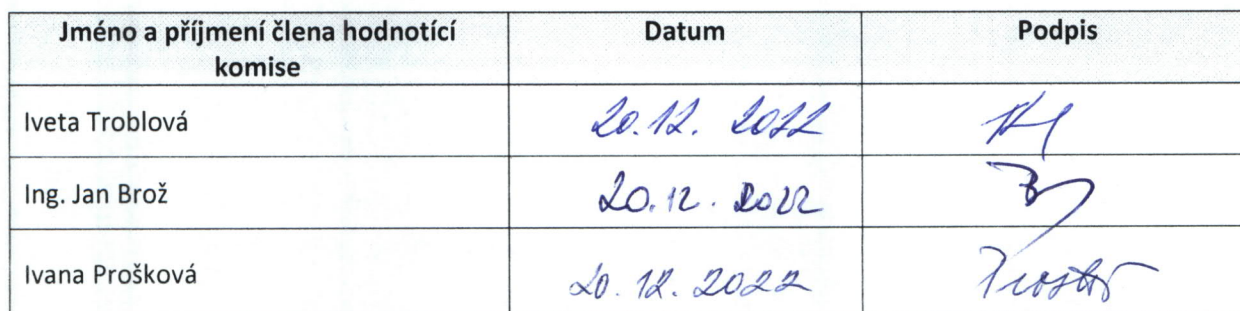 Jméno a příjmení člena hodnotící komise Datum Podpis
Iveta Troblová 20.12. 2022
Ing. Jan Brož 20.12. 2022
Ivana Prošková 20.12.2022